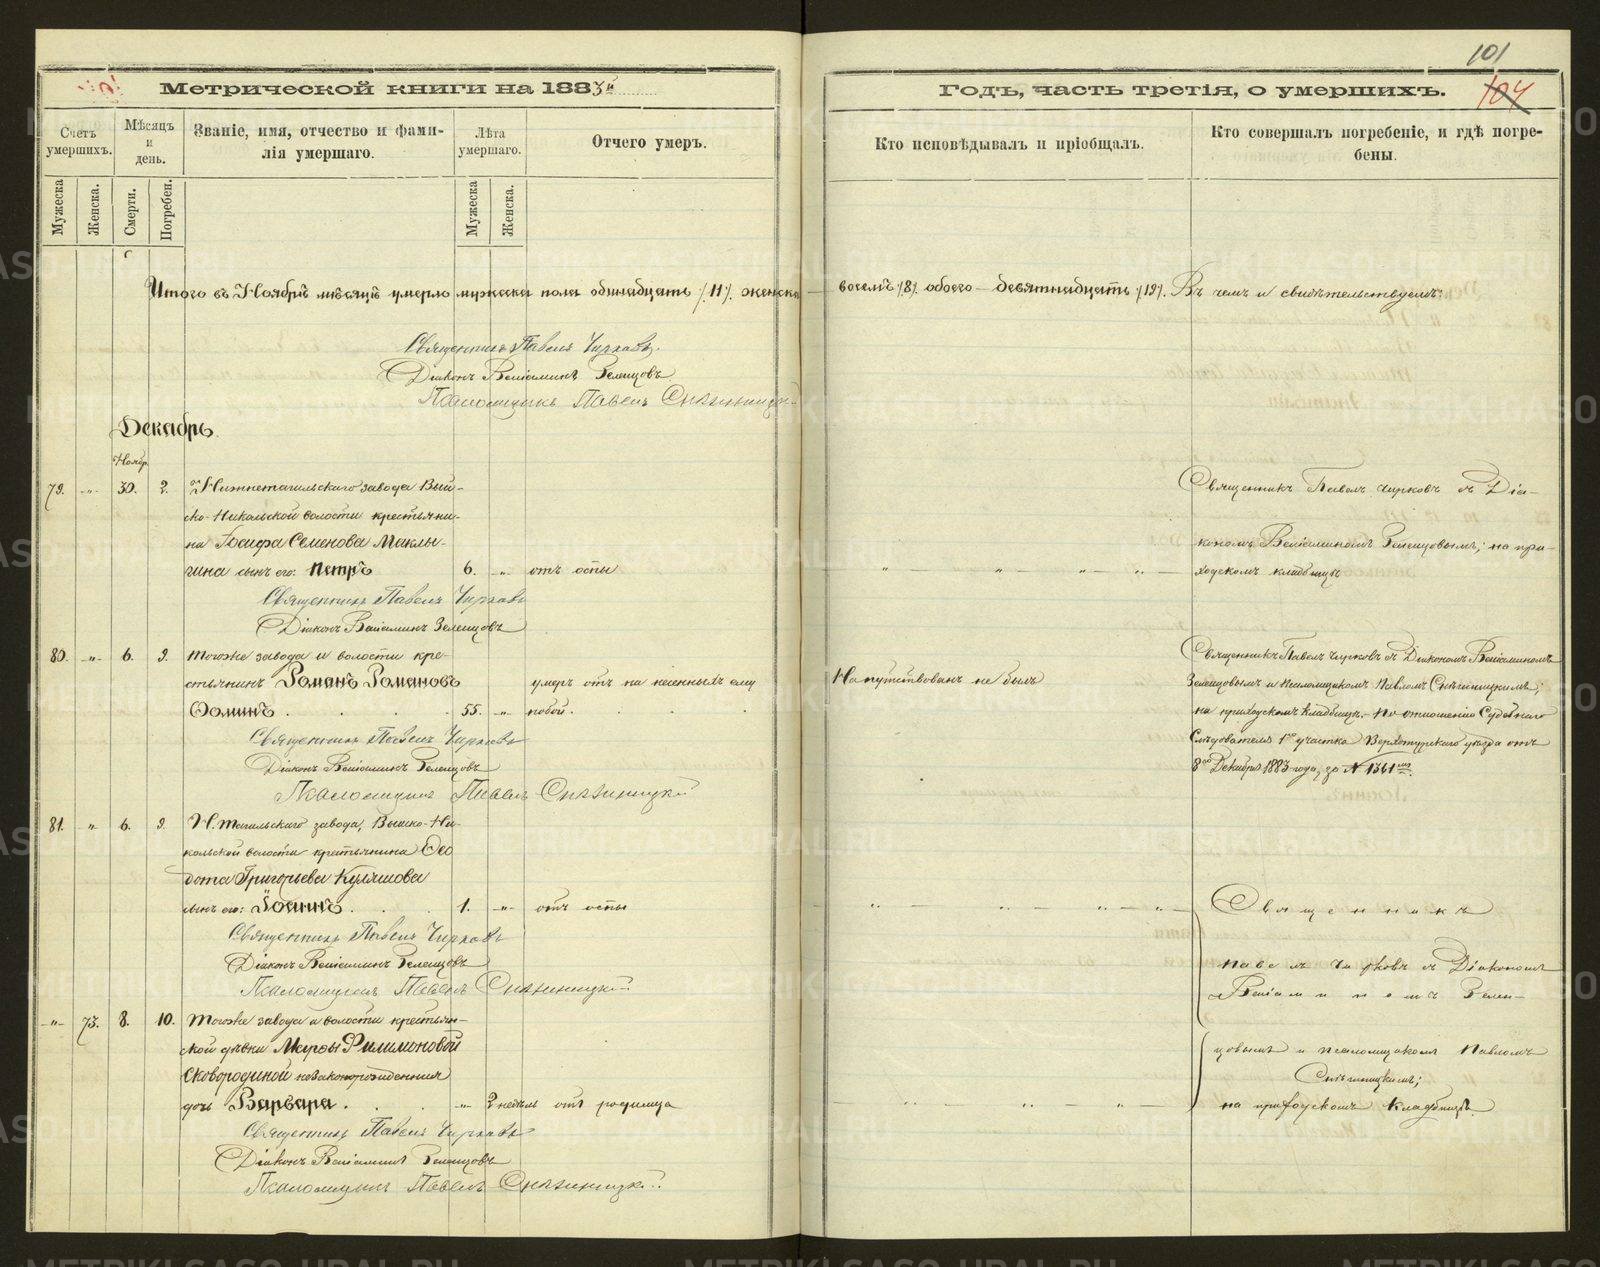 101
104
Метрической книги на 1883й
Годъ, часть третія, о умершихъ.
Счетъ умершихъ.
Мѣсяцъ и день.
Званіе, имя, отчество и фами-
лія умершаго.
Лѣта умершаго.
Отчего умеръ.
Кто исповѣдывалъ и пріобщалъ.
Кто совершалъ погребеніе, и гдѣ погре-
бены.
Мужеска
Женска.
Смерти.
Погребен.
Мужеска
Женска.
Итого въ Ноябрѣ мѣсяцѣ умерло мужеска пола одинадцать /11/. женска восемь /8/. обоего девятнадцать /19/. Въ чемъ и свидѣтельствуемъ:
Священникъ Павелъ Чирковъ.
Діаконъ Веніаминъ Зеленцовъ
Псаломщикъ Павелъ
Декабрь.
Ноябр.
79. -"- 30. 2. Нижнетагильскаго завода Вый-
ско-Никольской волости крестьяни-
на Іосифа Семенова Маклы-
гина сынъ его: Петръ 6. -"- отъ оспы
Священникъ Павелъ Чирковъ
Діаконъ Веніаминъ Зеленцовъ
Священникъ Павелъ Чирковъ съ Діа-
кономъ Веніаминомъ Зеленцовымъ; на при-
ходскомъ кладбищѣ
80. -"- 6. 9. тогоже завода и волости кре-
стьянинъ Романъ Романовъ умеръ отъ нанесенныхъ ему
Ѳоминъ 55. -"- побой.
Священникъ Павелъ Чирковъ
Діаконъ Веніаминъ Зеленцовъ
Псаломщикъ Павелъ
Напутствованъ не былъ
Священникъ Павелъ Чирковъ съ Діакономъ Веніаминомъ
Зеленцовымъ и псаломщикомъ Павломъ
на приходскомъ кладбищѣ. По отношенію Судебнаго
Слѣдователя 1го участка Верхотурскаго уѣзда отъ
8го Декабря 1883 года, за № 1361мъ.
81. " 6. 9. Н. Тагильскаго завода, Выйско-Ни-
кольской волости крестьянина Ѳео
дота Григорьева Кулишова
сынъ его: Іоаннъ 1. -"- отъ оспы
Священникъ Павелъ Чирковъ
Діаконъ Веніаминъ Зеленцовъ
Псаломщикъ Павелъ
Священникъ
Павелъ Чирковъ съ Діакономъ
Веніаминомъ Зелен-
-"- 73. 8. 10. тогоже завода и волости крестьян-
ской дѣвки Марѳы Филимоновой
Сковородиной незаконорожденная
дочь Варвара -"- 2 недѣль отъ родимца
Священникъ Павелъ Чирковъ
Діаконъ Веніаминъ Зеленцовъ
Псаломщикъ Павелъ
цовымъ и псаломщикомъ Павломъ
на приходскомъ кладбищѣ.
METRIKI.GASO-URAL.RU